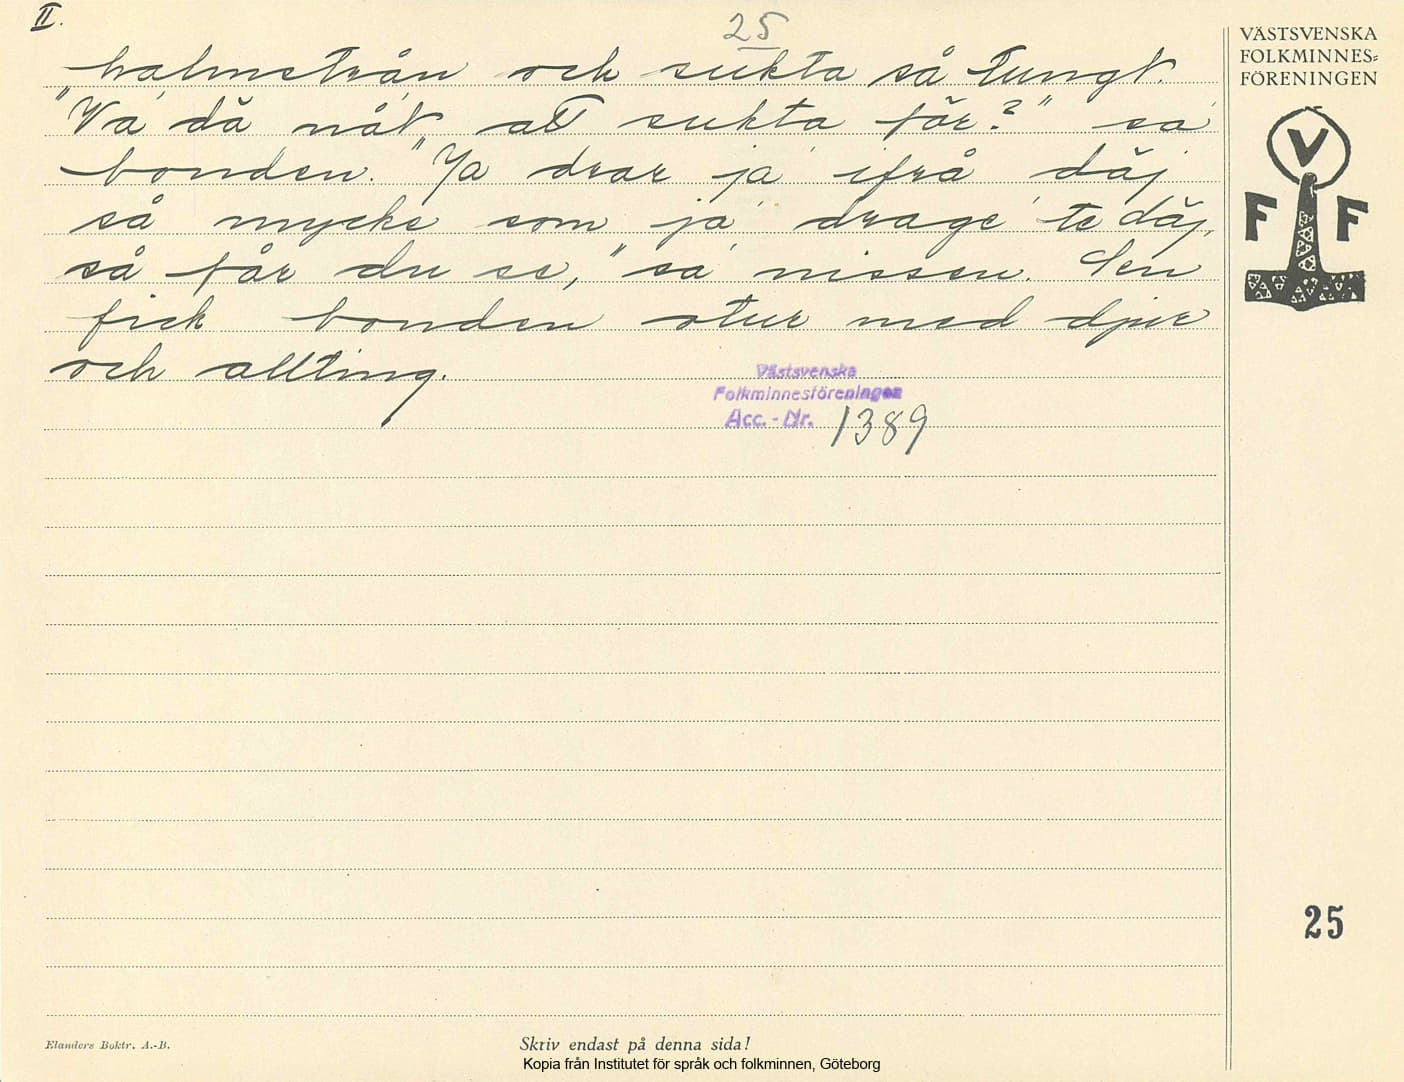 II.
25
halmstrån och sukta så tungt.
"Va' då nåt att sukta får?" sa'
bonden. "Ja drar ja' ifrå dåj
så mycke som ja' drage' te dåj,
så får du se," sa' nissen. Sen
fick bonden otur med djur
och allting.
Västsvenska
Folkminnesföreningen
Acc.-Nr. 1389
VÄSTSVENSKA
FOLKMINNES=
FÖRENINGEN
V
F F
25
Elanders Boktr. A.-B.
Skriv endast på denna sida!
Kopia från Institutet för språk och folkminnen, Göteborg